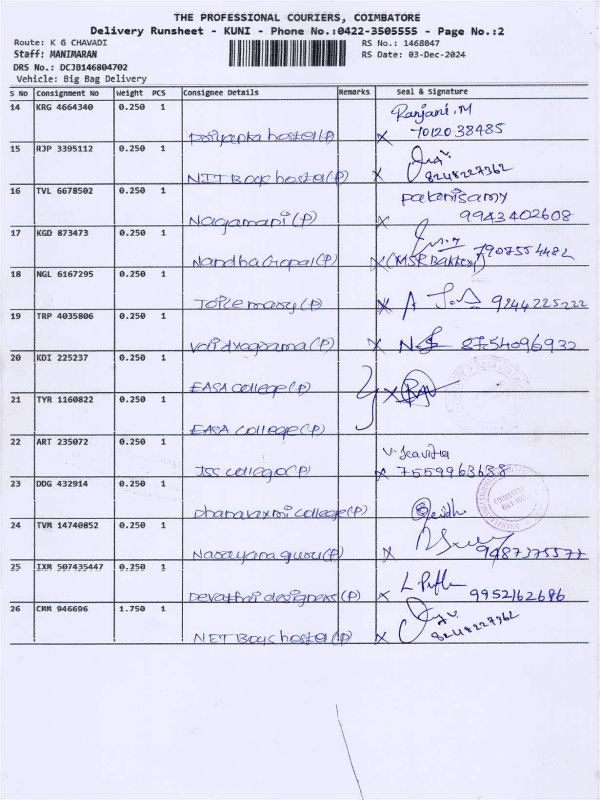 THE PROFESSIONAL COURIERS, COIMBATORE
Delivery Runsheet - KUNI - Phone No.:0422-3505555 - Page No.:2
Route: K G CHAVADI RS No.: 1468047
Staff: MANIMARAN RS Date: 03-Dec-2024
DRS No.: DCJB146804702
Vehicle: Big Bag Delivery
S No Consignment No Weight PCS Consignee Details Remarks Seal & Signature
14 KRG 4664340 0.250 1 Ranjani.M
hostel(P) x 7012038485
15 RJP 3395112 0.250 1
NIT Boys hostel(P) x 8248227362
16 TVL 6678502 0.250 1 palanisamy
Nagamani(P) x 9943402608
17 KGD 873473 0.250 1
Nandha Gopal(P) x (MSR Bakkery) 7907554482
18 NGL 6167295 0.250 1
(P) x A 9244225222
19 TRP 4035806 0.250 1
(P) x 8754096932
20 KDI 225237 0.250 1
EASA college(P) x
21 TYR 1160822 0.250 1
EASA college(P)
22 ART 235072 0.250 1 V.
JSS college(P) x 7559963638
23 DDG 432914 0.250 1
Dhanalaxmi college(P)
24 TVM 14740852 0.250 1
Narayana guru(P) x 9487375577
25 IXM 507435447 0.250 1
designers(P) x 9952162686
26 CMM 946696 1.750 1
NET Boys hostel(P) x 8248227362